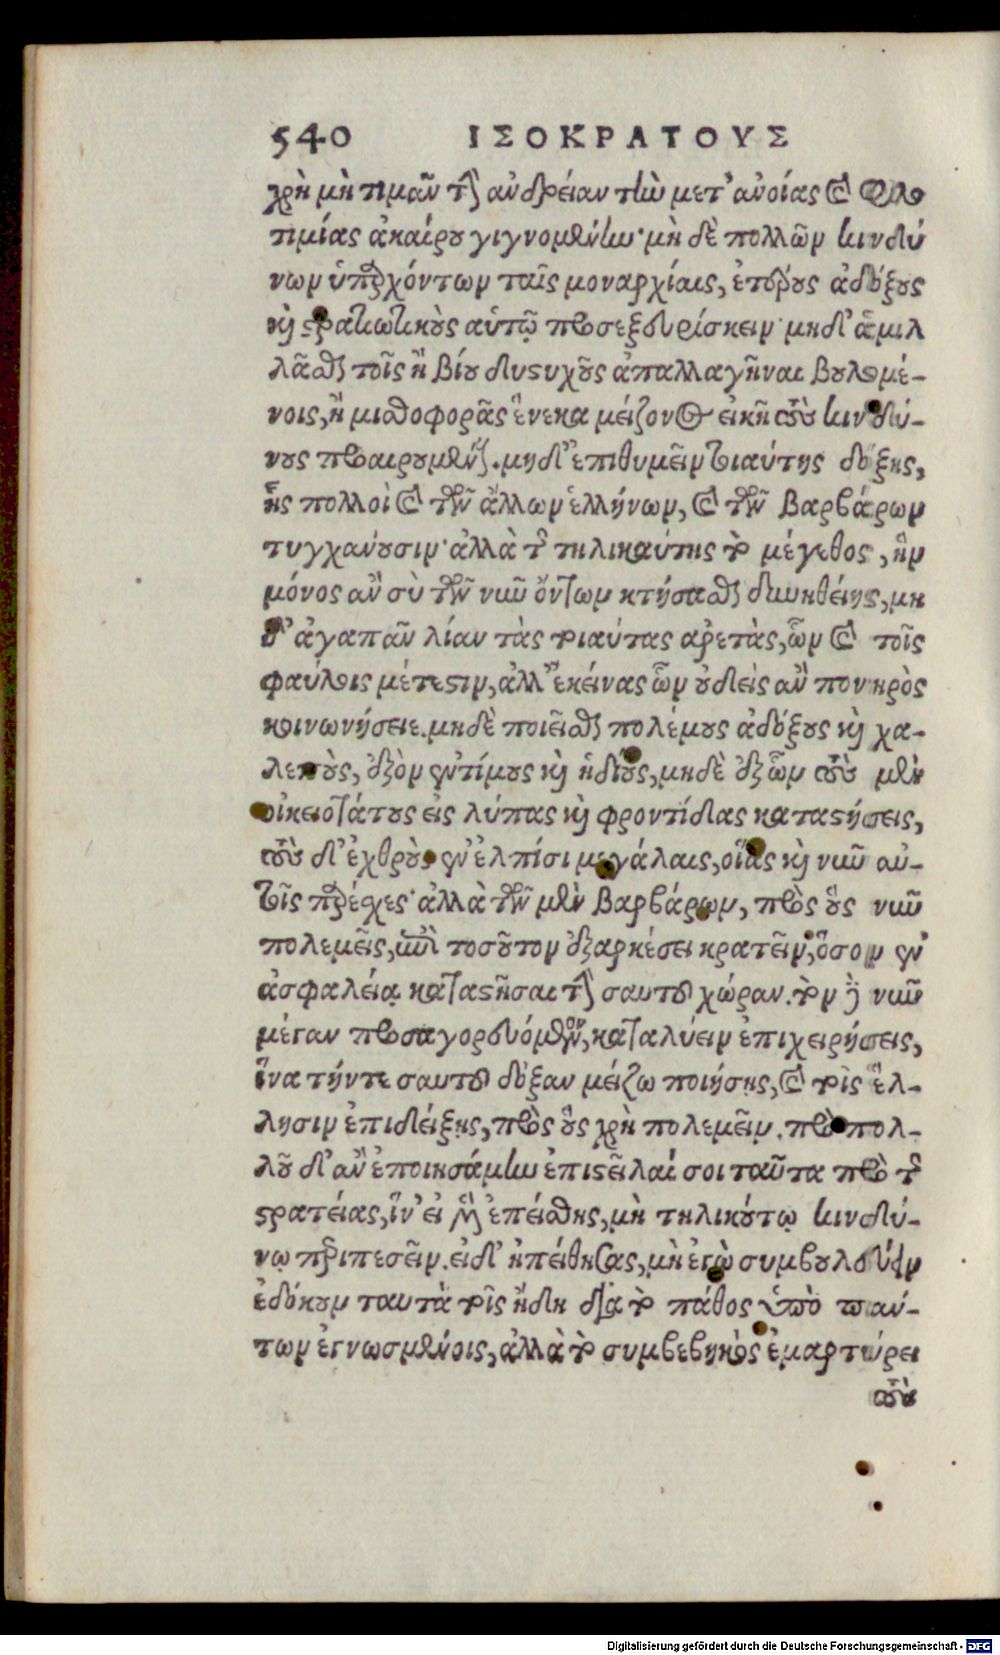 540 ΙΣΟΚΡΑΤΟΥΣ
χρὴ μὴ τιμᾶν τὴν ἀνδρείαν τὴν μετ' ἀνοίας καὶ φιλο
τιμίας ἀκαίρου γιγνομένην· μὴ δὲ πολλῶν κινδύ
νων ὑπαρχόντων ταῖς μοναρχίαις, ἑτέρους ἀδόξους
καὶ στρατιωτικοὺς αὑτῷ προσεξευρίσκειν· μηδ' ἁμιλ
λᾶσθαι τοῖς ἢ βίου δυστυχοῦς ἀπαλλαγῆναι βουλομέ-
νοις, ἢ μισθοφορᾶς ἕνεκα μείζονος εἰκῆ τοὺς κινδύ-
νους προαιρουμένοις. μηδ' ἐπιθυμεῖν τοιαύτης δόξης,
ἧς πολλοὶ καὶ τῶν ἄλλων ἑλλήνων, καὶ τῶν βαρβάρων
τυγχάνουσιν· ἀλλὰ τῆς τηλικαύτης τὸ μέγεθος, ἣν
μόνος ἂν σὺ τῶν νῦν ὄντων κτήσασθαι δυνηθείης, μη
δ' ἀγαπᾶν λίαν τὰς τοιαύτας ἀρετὰς, ὧν καὶ τοῖς
φαύλοις μέτεστιν, ἀλλ' ἐκείνας ὧν οὐδεὶς ἂν πονηρὸς
κοινωνήσειε. μηδὲ ποιεῖσθαι πολέμους ἀδόξους καὶ χα-
λεποὺς, ἐξὸν ἐντίμους καὶ ἡδίους, μηδὲ ἐξ ὧν τοὺς μὲν
οἰκειοτάτους εἰς λύπας καὶ φροντίδας καταστήσεις,
τοὺς δ' ἐχθροὺς ἐν ἐλπίσι μεγάλαις, οἵας καὶ νῦν αὐ-
τοῖς παρέσχες· ἀλλὰ τῶν μὲν βαρβάρων, πρὸς οὓς νῦν
πολεμεῖς, ἐπὶ τοσοῦτον ἐξαρκέσει κρατεῖν, ὅσον ἐν
ἀσφαλείᾳ καταστῆσαι τὴν σαυτοῦ χώραν. τὸν δὲ νῦν
μέγαν προσαγορευόμενον, καταλύειν ἐπιχειρήσεις,
ἵνα τήν τε σαυτοῦ δόξαν μείζω ποιήσῃς, καὶ τοῖς ἕλ-
λησιν ἐπιδείξῃς, πρὸς οὓς χρὴ πολεμεῖν. πρὸ πολ-
λοῦ δ' ἂν ἐποιησάμην ἐπιστεῖλαί σοι ταῦτα πρὸ τῆς
στρατείας, ἵν' εἰ μὲν ἐπείσθης, μὴ τηλικούτῳ κινδύ-
νῳ περιπεσεῖν. εἰ δ' ἠπείθησας, μὴ ἐγὼ συμβουλεύειν
ἐδόκουν ταυτὰ τοῖς ἤδη διὰ τὸ πάθος ὑπὸ παν-
των ἐγνωσμένοις, ἀλλὰ τὸ συμβεβηκὸς ἐμαρτύρει
τοὺς
Digitalisierung gefördert durch die Deutsche Forschungsgemeinschaft - DFG